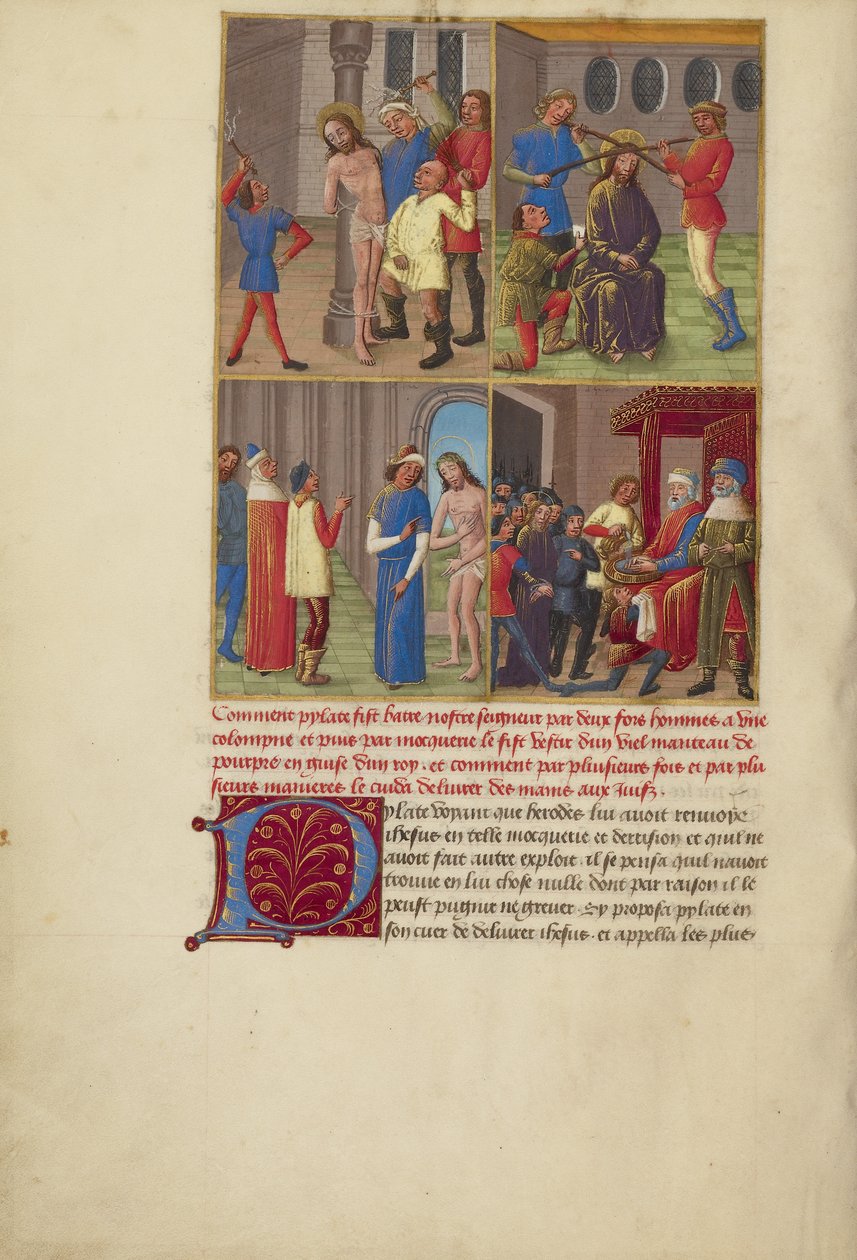 Comment pylate fist batre nostre seigneur par deux fors hommes a vne
colompne et puis par mocquerie le fist vestir dun viel manteau de
pourpre en guise dun roy. et comment par pluisieurs fois et par plu
sieurs manieres le cuida deliurer des mains aux Iuifz.
Pylate voyant que herodes lui auoit renuoye
ihesus en telle mocquerie et derrision et quil ne
auoit fait autre exploit. il se pensa quil nauoit
trouue en lui chose nulle dont par raison il le
peust pugnir ne greuer. Sy proposa pylate en
son cuer de deliurer ihesus. et appella les plus